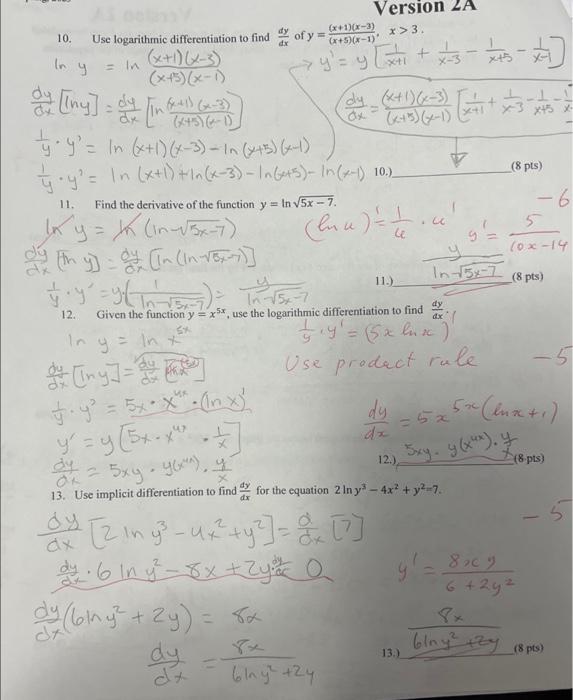 Version 2A
10. Use logarithmic differentiation to find dy/dx of y = (x+1)(x−3)/(x+5)(x−1), x > 3.
ln y = ln (x+1)(x-3)/(x+5)(x-1)
→ y' = y [1/x+1 + 1/x-3 - 1/x+5 - 1/x-1]
dy/dx [ln y] = dy/dx [ln (x+1)(x-3)/(x+5)(x-1)]
dy/dx = (x+1)(x-3)/(x+5)(x-1) [1/x+1 + 1/x-3 - 1/x+5 - 1/x-
1/y · y' = ln (x+1)(x-3) - ln (x+5)(x-1)
1/y · y' = ln (x+1) + ln (x-3) - ln (x+5) - ln (x-1)
10.) (8 pts)
11. Find the derivative of the function y = ln √5x − 7.
-6
ln y = ln (ln √5x-7)
(ln u)' = 1/u · u'
y' = 5/10x-14
dy/dx [ln y] = dy/dx [ln (ln √5x-7)]
11.) y/ln √5x-7 (8 pts)
1/y · y' = y (1/ln √5x-7) = y/ln √5x-7
12. Given the function y = x^5x, use the logarithmic differentiation to find dy/dx.
ln y = ln x^5x
1/y · y' = (5x ln x)'
Use product rule
-5
dy/dx [ln y] = dy/dx
1/y · y' = 5x · x^4x · (ln x)'
y' = y [5x · x^4x · 1/x]
dy/dx = 5x^5x (ln x + 1)
dy/dx = 5xy · y(x^4x) · y/x
12.) 5xy · y(x^4x) · y/x (8 pts)
13. Use implicit differentiation to find dy/dx for the equation 2 ln y^3 − 4x^2 + y^2=7.
-5
dy/dx [2 ln y^3 - 4x^2 + y^2] = d/dx [7]
dy/dx · 6 ln y^2 - 8x + 2y dy/dx = 0
y' = 8xy/6 + 2y^2
dy/dx (6 ln y^2 + 2y) = 8x
dy/dx = 8x/6 ln y^2 + 2y
13.) 8x/6 ln y^2 + 2y (8 pts)